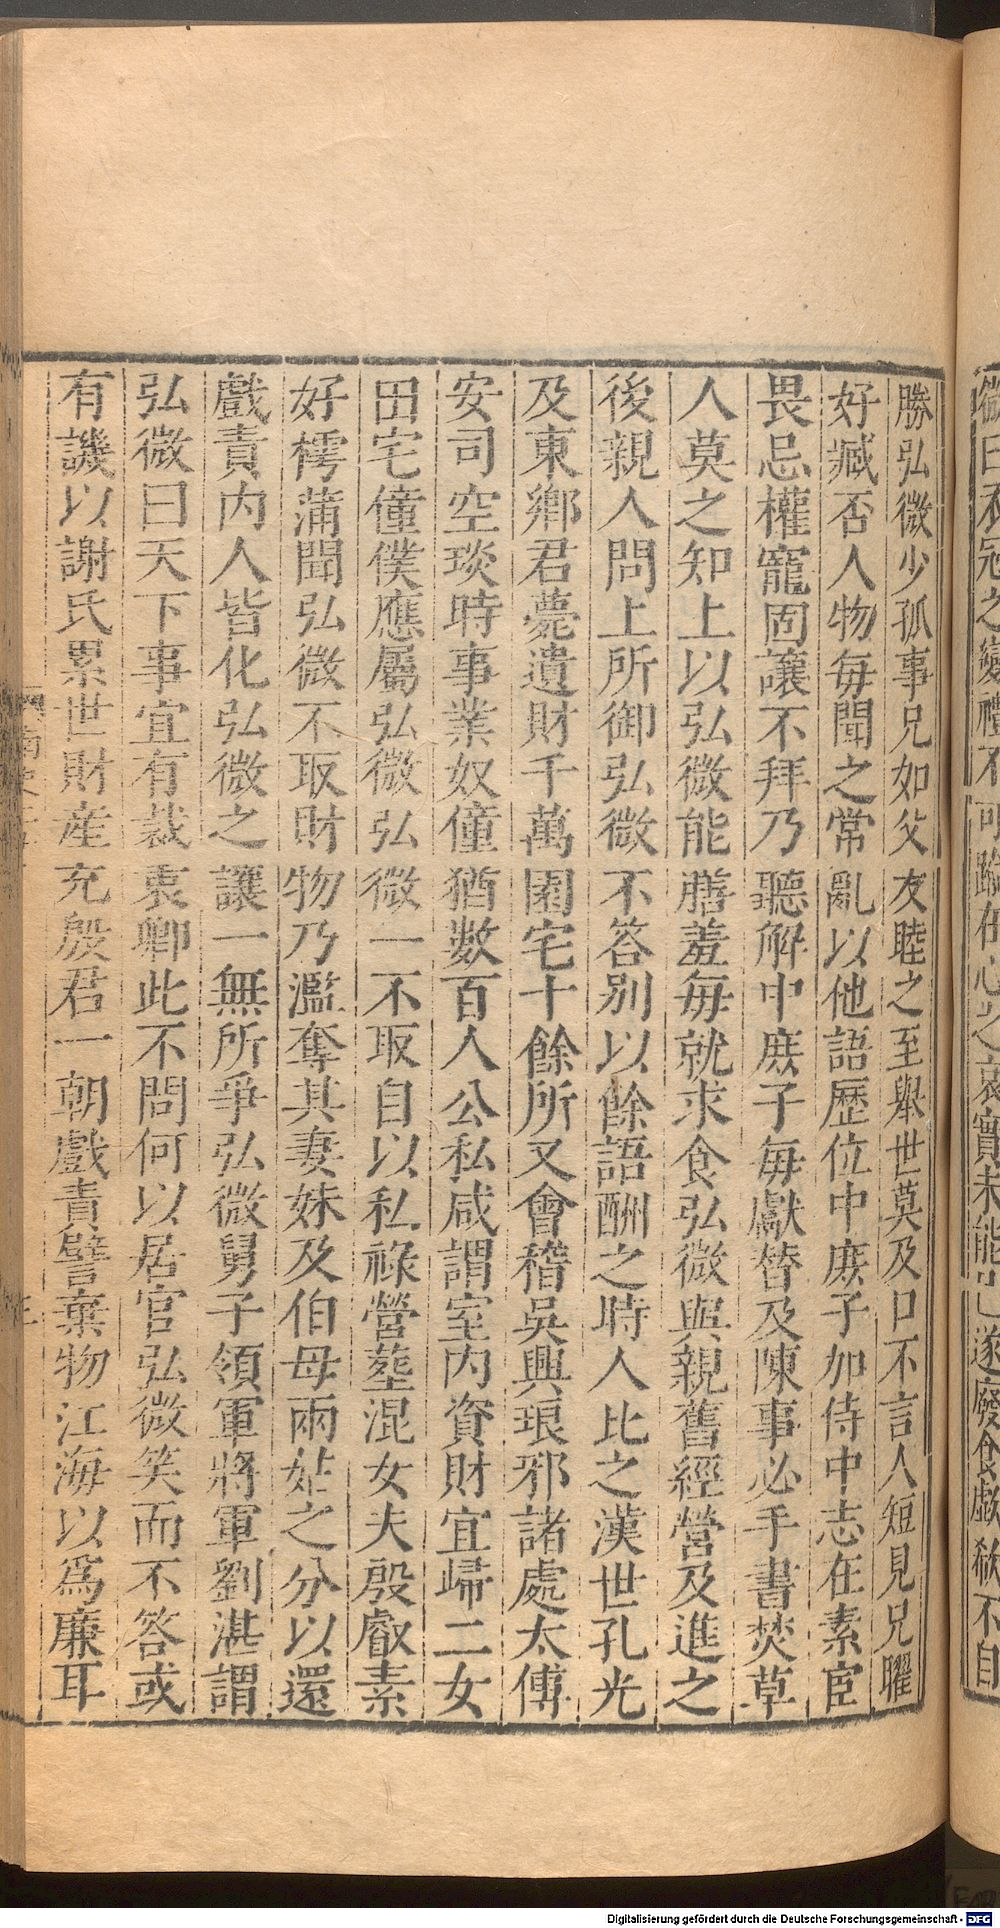 微曰衣冠之變禮不可踰在心之哀實未能已遂廢食歔欷不自
勝弘微少孤事兄如父友睦之至舉世莫及口不言人短見兄曜
好臧否人物每聞之常亂以他語歷位中庶子加侍中志在素宦
畏忌權寵固讓不拜乃聽解中庶子每獻替及陳事必手書焚草
人莫之知上以弘微能膳羞每就求食弘微與親舊經營及進之
後親人問上所御弘微不答别以餘語酬之時人比之漢世孔光
及東鄉君薨遺財千萬園宅十餘所又會稽吳興琅邪諸處太傅
安司空琰時事業奴僮猶數百人公私咸謂室内資財宜歸二女
田宅僮僕應屬弘微弘微一不取自以私祿營塟混女夫殷叡素
好樗蒲聞弘微不取財物乃濫奪其妻妹及伯母兩姑之分以還
戲責内人皆化弘微之讓一無所爭弘微舅子領軍將軍劉湛謂
弘微曰天下事宜有裁衷卿此不問何以居官弘微笑而不答或
有譏以謝氏累世財産充殷君一朝戲責譬棄物江海以爲廉耳
Digitalisierung gefördert durch die Deutsche Forschungsgemeinschaft - DFG